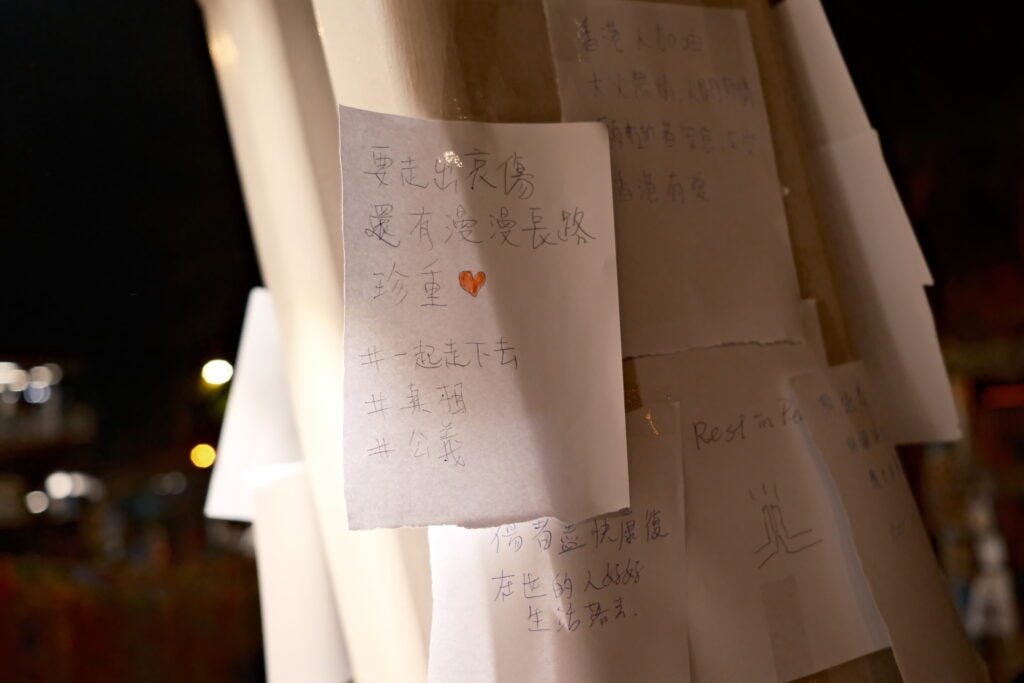 要走出哀傷
還有漫漫長路
珍重
#一起走下去
#真相
#公義
香港人加油
大火無情,人間有情
香港有愛
傷者盡快康復
在世的人好好
生活落去.
Rest in